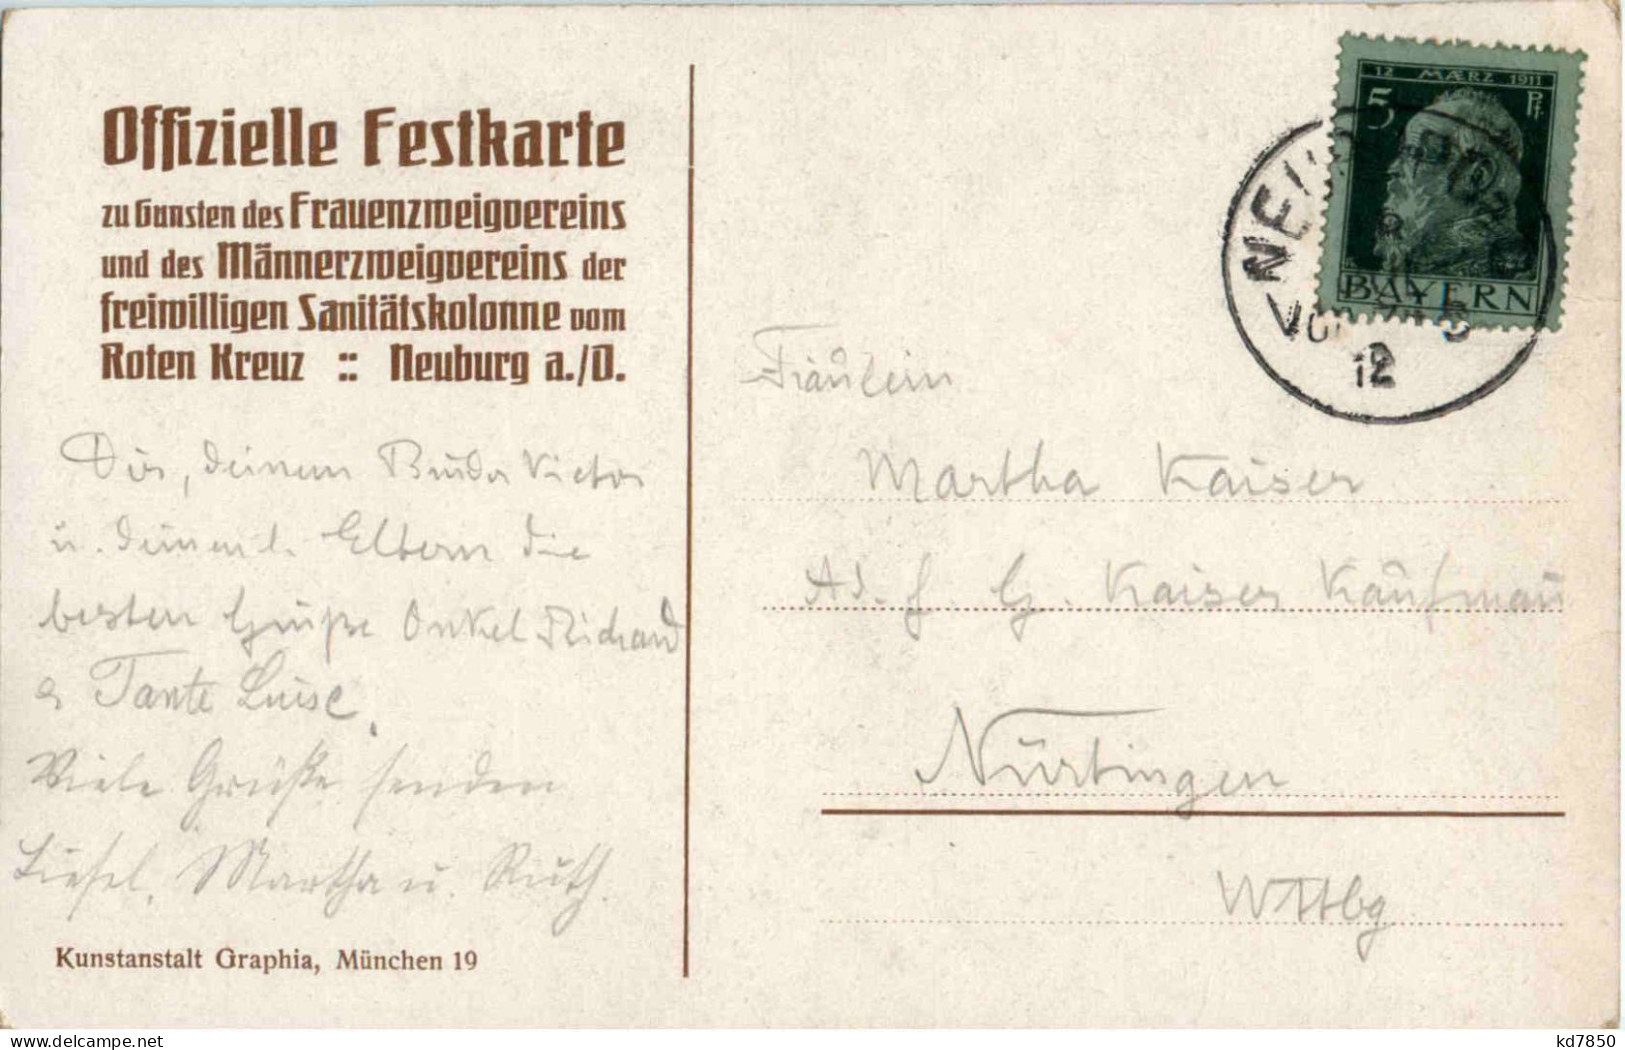 Offizielle Festkarte
zu Gunsten des Frauenzweigvereins
und des Männerzweigvereins der
freiwilligen Sanitätskolonne vom
Roten Kreuz :: Neuburg a./D.
Dir, deinem Bruder Victor
u. deinen l. Eltern die
besten Grüße Onkel Richard
& Tante Luise.
Viele Grüße senden
Liesel, Martha u. Ruth.
Kunstanstalt Graphia, München 19
12 MÆRZ 1911
5 Pf.
BAYERN
NEUBURG
VORM
12
Fräulein
Martha Kaiser
Ad. f. G. Kaiser Kaufmann
Nürtingen
Wttbg
kd7850